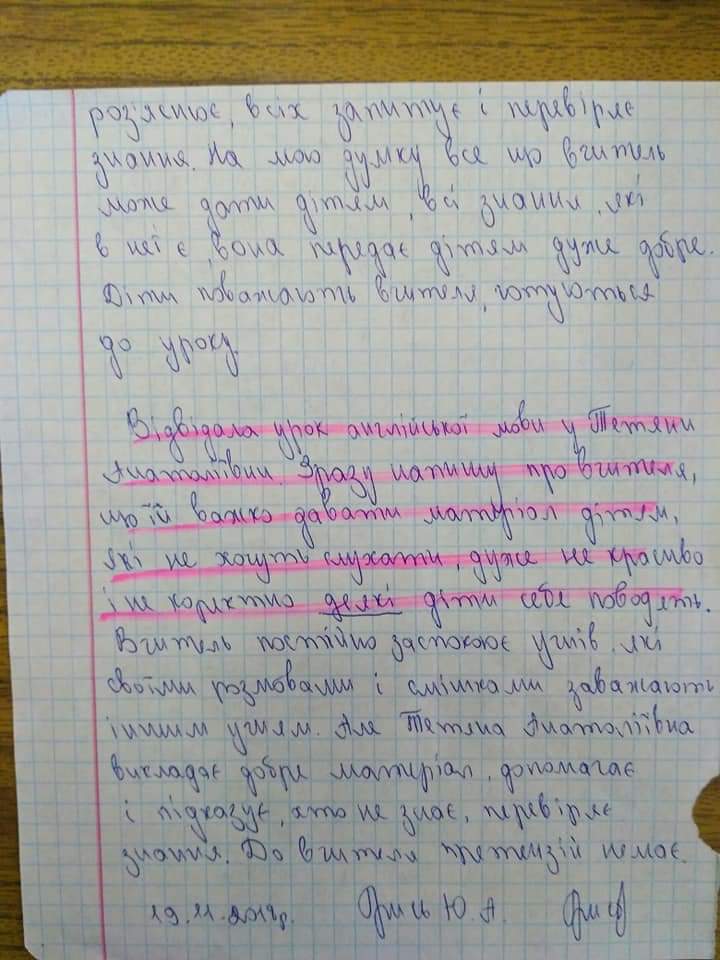 роз'яснює, всіх запитує і перевіряє
знання. На мою думку все що вчитель
може дати дітям, всі знання, які
в неї є, вона передає дітям дуже добре.
Діти поважають вчителя, готуються
до уроку.
Відвідала урок англійської мови у Тетяни
Анатоліївни. Зразу напишу про вчителя,
що їй важко давати матеріал дітям,
які не хочуть слухати, дуже не красиво
і не коректно деякі діти себе поводять.
Вчитель постійно заспокоює учнів, які
своїми розмовами і смішками заважають
іншим учням. Але Тетяна Анатоліївна
викладає добре матеріал, допомагає
і підказує, хто не знає, перевіряє
знання. До вчителя претензій немає.
19.11.2019р. Ю. А.